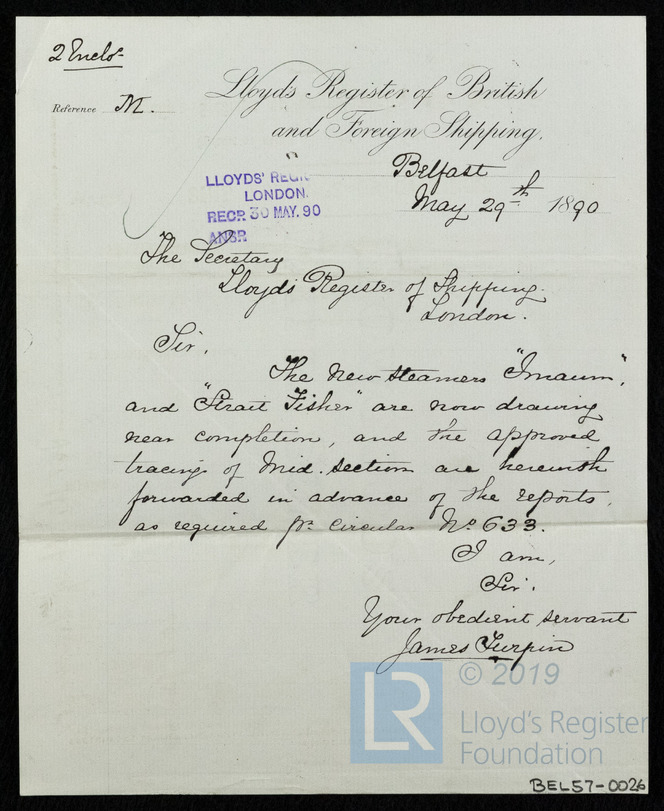 2 Enclos
Reference M.
Lloyd's Register of British
and Foreign Shipping.
Belfast
May 29th 1890
LLOYDS' REGR
LONDON.
RECP. 30 MAY. 90
ANSR
The Secretary
Lloyds Register of Shipping.
London.
Sir,
The new steamers "Imaum",
and "Strait Fisher" are now drawing
near completion, and the approved
tracings of Mid. section are herewith
forwarded in advance of the reports,
as required pr. circular No. 633.
I am,
Sir.
Your obedient servant
James Turpin
© 2019
LR
Lloyd's Register
Foundation
BEL57-0026